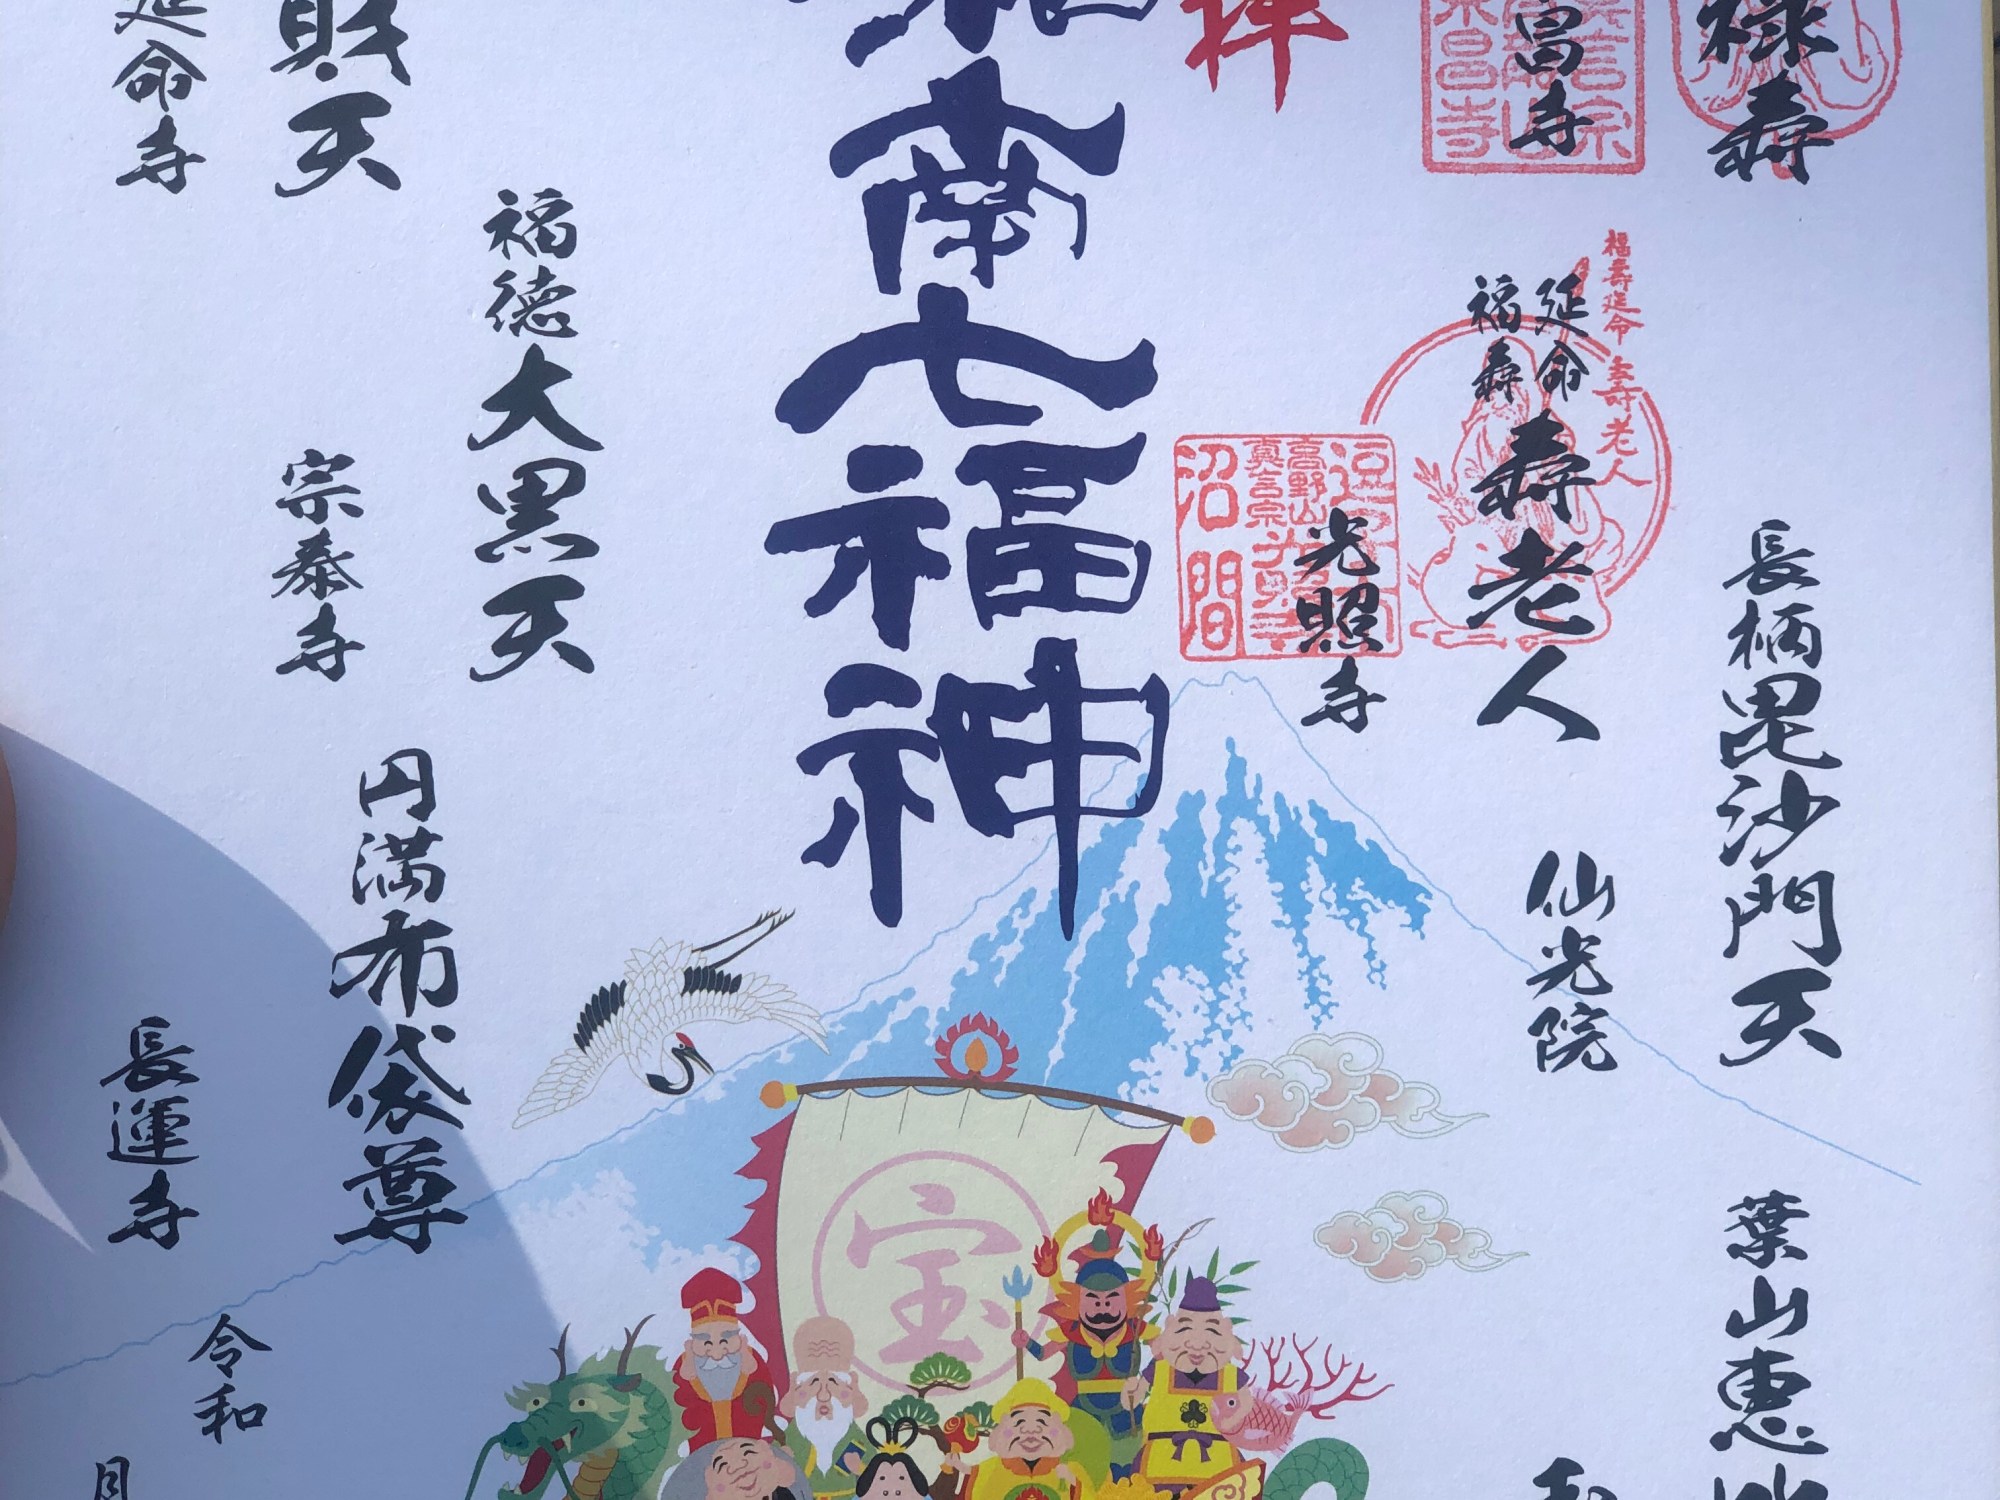 禄寿
冨寺
拝
湘南七福神
福寿延命 寿老人
延命
福寿
寿老人
高野山
真言宗
沼間
光照寺
長柄毘沙門天
仙光院
葉山恵比
財天
延命寺
福徳大黒天
宗泰寺
円満布袋尊
長運寺
令和
月
宝